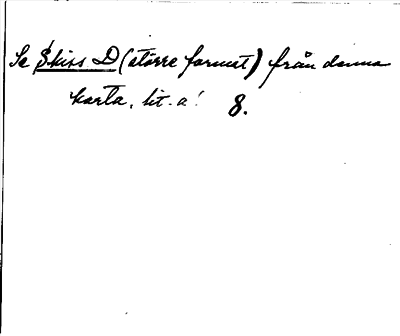 Se Skiss D (större format) från denna
karta, lit. a! 8.